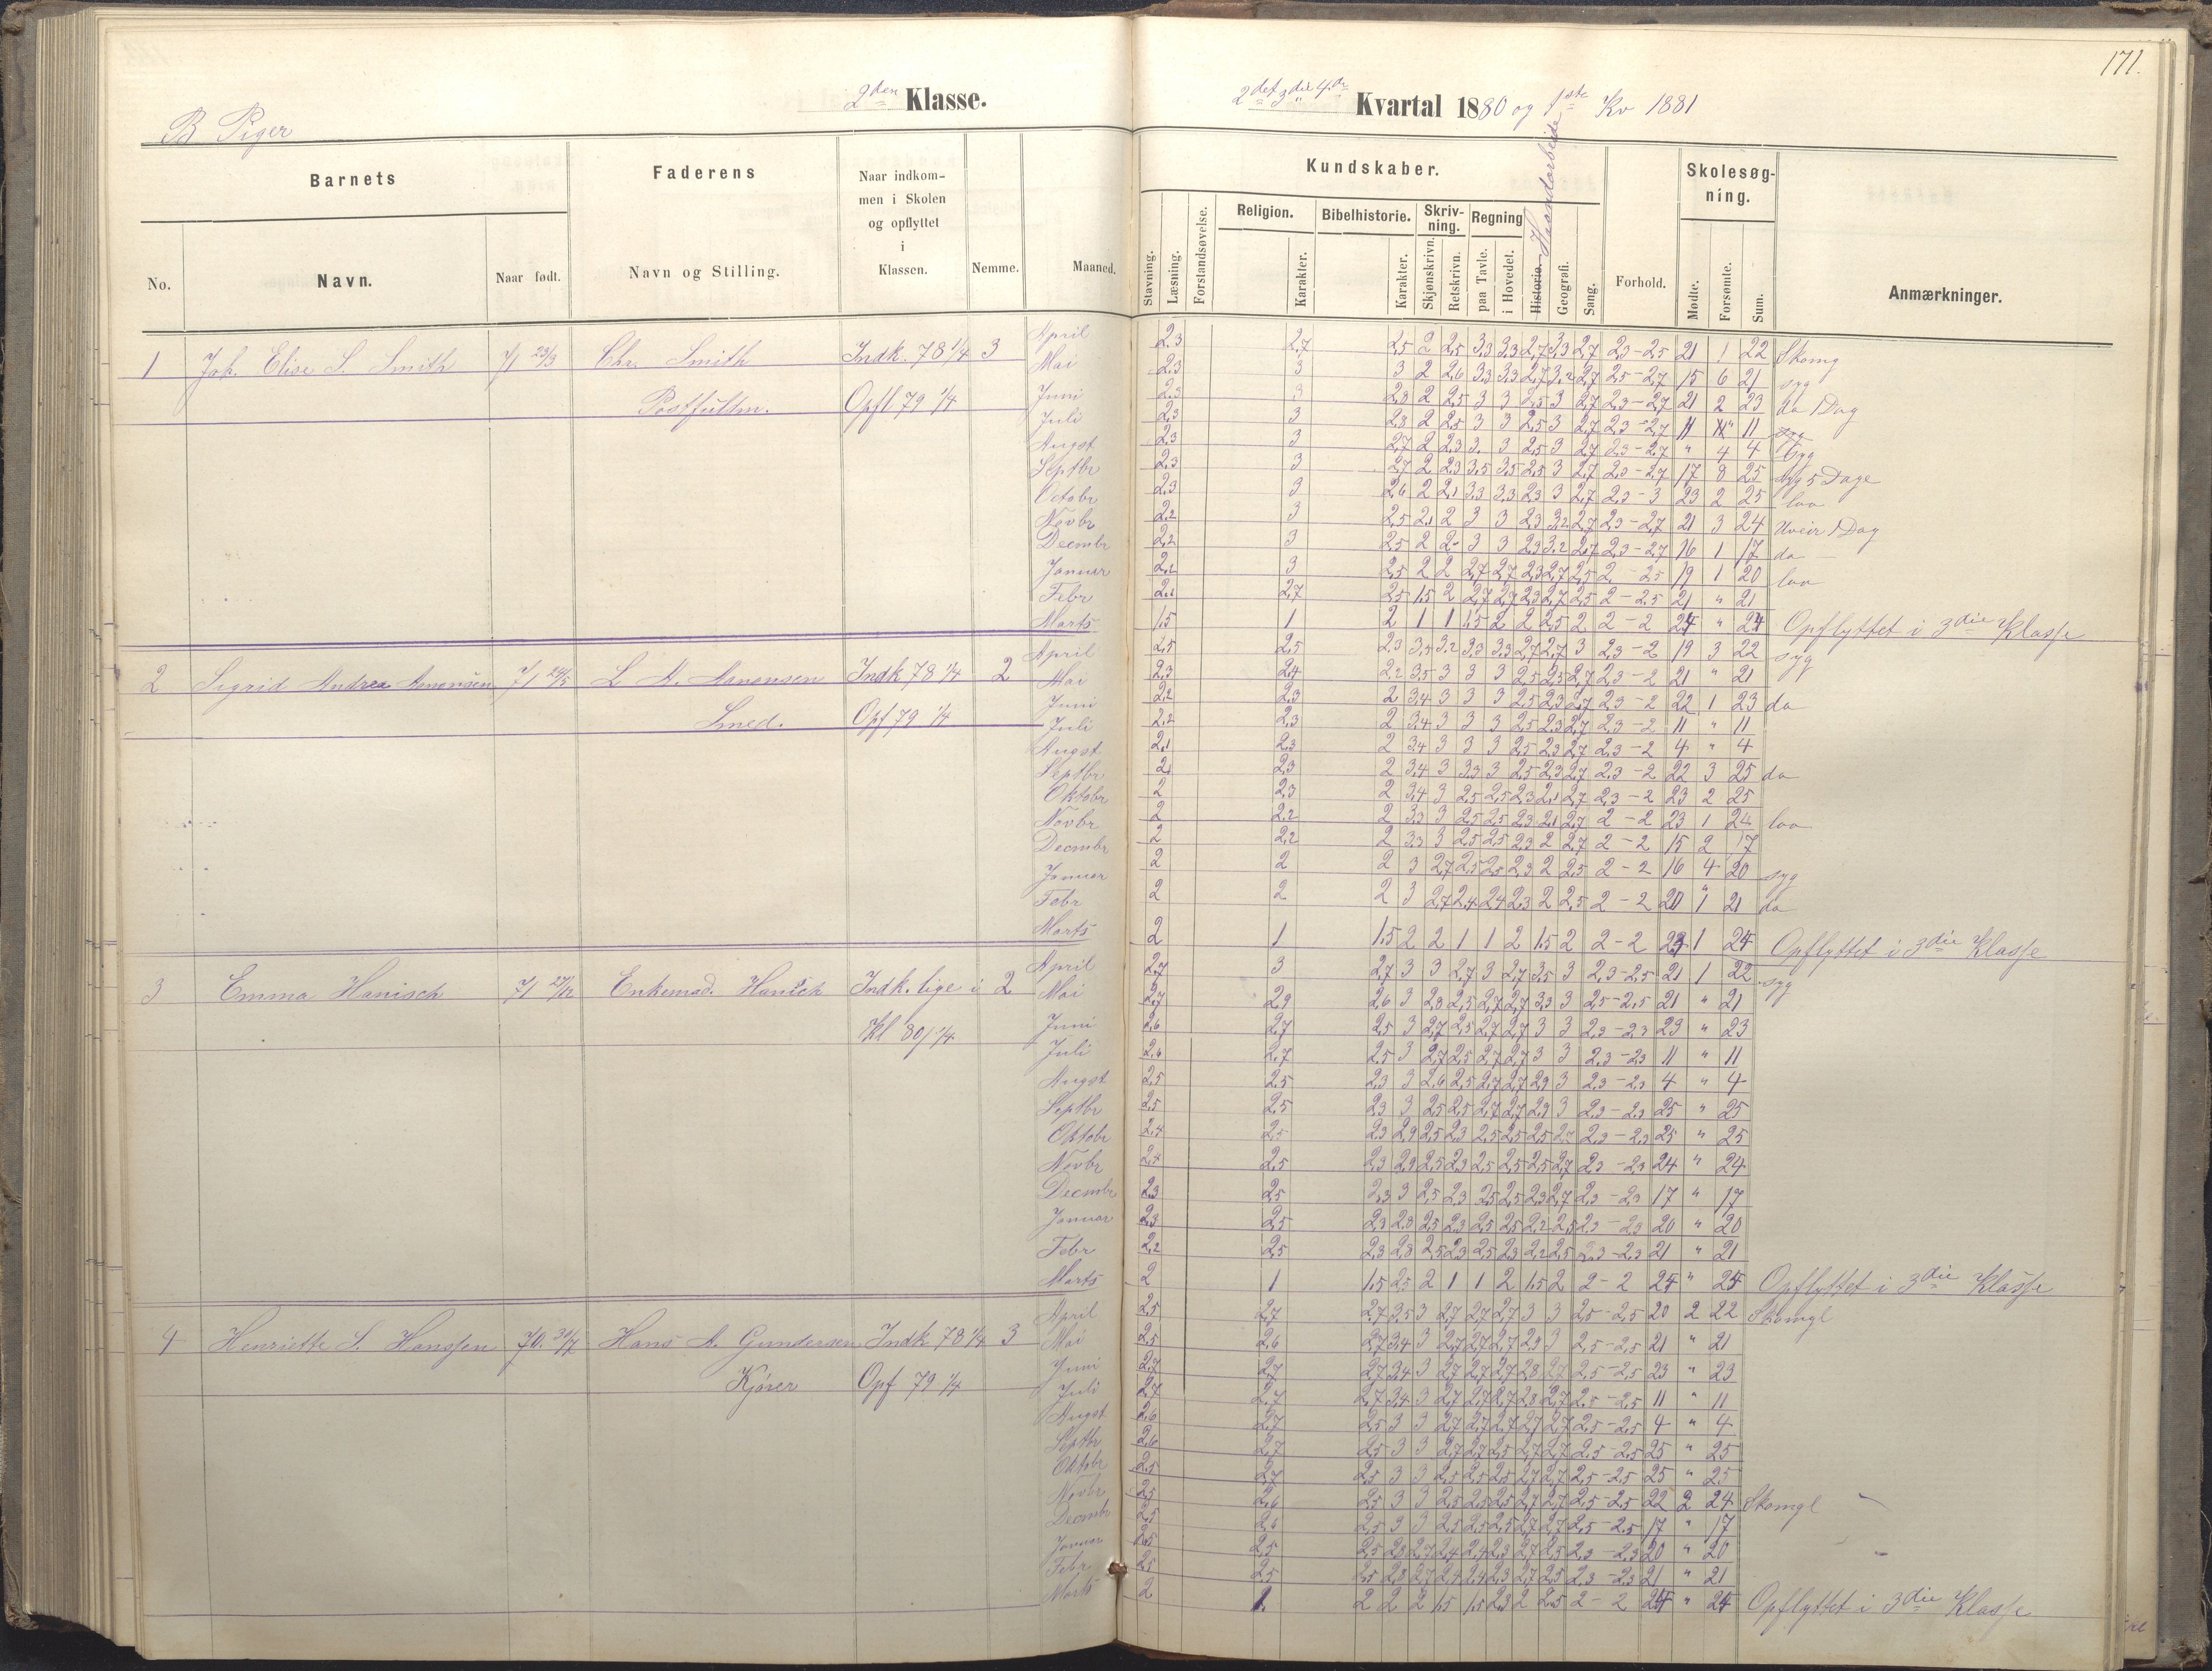 171.
B Piger
2den Klasse.
2det 3die 4de Kvartal 1880 og 1ste Kv 1881
Barnets
Faderens
Naar indkom-
men i Skolen
og opflyttet
i
Klassen.
Nemme.
Maaned.
No.
Navn.
Naar født.
Navn og Stilling.
Kundskaber.
Skolesøg-
ning.
Stavning.
Læsning.
Forstandsøvelse.
Religion.
Karakter.
Bibelhistorie.
Karakter.
Skriv-
ning.
Skjønskrivn.
Retskrivn.
Regning
paa Tavle.
i Hovedet.
Historie.
Haandarbeide
Geografi.
Sang.
Forhold.
Mødte.
Forsømte.
Sum.
Anmærkninger.
1 Joh. Elise S. Smith 71 23/3 Chr. Smith Indk. 78 1/4 3
Opfl 79 1/4
April 2,3 2,7 2,5 2 2,5 3,3 3,3 2,7 3,3 2,7 2,3-2,5 21 1 22 Skomg
Mai 2,3 3 3 2 2,6 3,3 3,3 2,7 3,2 2,7 2,5-2,7 15 6 21 syg
Juni 2,3 3 2,8 2 2,5 3 3 2,5 3 2,7 2,3-2,7 21 2 23 do 1 Dag
Juli 2,3 3 2,8 2 2,5 3 3 2,5 3 2,7 2,3-2,7 11 " 11
Augst 2,3 3 2,7 2 2,3 3. 3 2,5 3 2,7 2,3-2,7 " 4 4 syg
Septbr 2,3 3 2,7 2 2,3 3,5 3,5 2,5 3 2,7 2,3-2,7 17 8 25 syg 5 Dage
Octobr 2,3 3 2,6 2 2,1 3,3 3,3 2,3 3 2,7 2,3-3 23 2 25 lov
Novbr 2,2 3 2,5 2,1 2 3 3 2,3 3,2 2,7 2,3-2,7 21 3 24 Uveir 1 Dag
Decmbr 2,2 3 2,5 2 2 3 3 2,3 3,2 2,7 2,3-2,7 16 1 17 do
Januar 2,2 3 2,5 2 2 2,7 2,7 2,3 2,7 2,5 2-2,5 19 1 20 lov
Febr 2,2 2,7 2,5 1,5 2 2,7 2,7 2,3 2,7 2,5 2-2,5 21 " 21
Marts 1,5 1 2 1 1 1,5 2 2 2,5 2 2-2 24 " 24 Opflyttet i 3die Klasse
2 Sigrid Andrea Amonsen 71 24/5 L A. Amonsen Indk 78 1/4 2
Smed. Opf 79 1/4
April 2,5 2,5 2,3 3,5 3,2 3,3 3,3 2,7 2,7 3 2,3-2 19 3 22 syg
Mai 2,3 2,4 2,2 3,5 3 3 3 2,5 2,5 2,7 2,3-2 21 " 21
Juni 2,2 2,3 2 3,4 3 3 3 2,5 2,3 2,7 2,3-2 22 1 23 do
Juli 2,2 2,3 2 3,4 3 3 3 2,5 2,3 2,7 2,3-2 11 " 11
Augst 2,1 2,3 2 3,4 3 3 3 2,5 2,3 2,7 2,3-2 4 " 4
Septbr 2, 2,3 2 3,4 3 3,3 3 2,5 2,3 2,7 2,3-2 22 3 25 do
Oktobr 2 2,3 2 3,4 3 2,5 2,5 2,3 2,1 2,7 2,3-2 23 2 25
Novbr 2 2,2 2 3,3 3 2,5 2,5 2,3 2,1 2,7 2-2 23 1 24 lov
Decmbr 2 2,2 2 3,3 3 2,5 2,5 2,3 2 2,7 2-2 15 2 17
Januar 2 2 2 3 2,7 2,5 2,5 2,3 2 2,5 2-2 16 4 20 syg
Febr 2 2 2 3 2,7 2,4 2,4 2,3 2 2,5 2-2 20 1 21 do
Marts 2 1 1,5 2 2 1 1 2 1,5 2 2-2 23 1 24 Opflyttet i 3die Klasse
3 Emma Hanisch 71 27/12 Enkemad. Hanisch Indk. lige i 2
Kl 80/ 1/4
April 2,7 3 2,7 3 3 2,7 3 2,7 3,5 3 2,3-2,5 21 1 22 syg
Mai 2,7 2,9 2,6 3 2,8 2,5 2,7 2,7 3,3 3 2,5-2,5 21 " 21
Juni 2,6 2,7 2,5 3 2,7 2,5 2,7 2,7 3 3 2,3-2,3 23 " 23
Juli 2,6 2,7 2,5 3 2,7 2,5 2,7 2,7 3 3 2,3-2,3 11 " 11
Augst 2,5 2,5 2,3 3 2,6 2,5 2,7 2,7 2,9 3 2,3-2,3 4 " 4
Septbr 2,5 2,5 2,3 3 2,5 2,5 2,7 2,7 2,9 3 2,3-2,3 25 " 25
Oktobr 2,4 2,5 2,3 2,9 2,5 2,3 2,5 2,5 2,5 2,7 2,3-2,3 25 " 25
Novbr 2,4 2,5 2,3 2,9 2,5 2,3 2,5 2,5 2,5 2,7 2,3-2,3 24 " 24
Decmbr 2,3 2,5 2,3 3 2,5 2,3 2,5 2,5 2,3 2,7 2,3-2,3 17 " 17
Januar 2,3 2,5 2,3 2,8 2,5 2,3 2,5 2,5 2,2 2,5 2,3-2,3 20 " 20
Febr 2,2 2,5 2,3 2,8 2,5 2,3 2,5 2,3 2,2 2,5 2,3-2,3 21 " 21
Marts 2 1 1,5 2,5 2 1 1 2 1,5 2 2-2 24 " 24 Opflyttet i 3die Klasse
4 Henriette S. Hanssen 70. 31/7 Hans A. Gundersen Indk 78 1/4 3
Kjører Opf 79 1/4
April 2,5 2,7 2,7 3,5 3 2,7 2,7 2,7 3 3 2,5-2,5 20 2 22 Skomgl
Mai 2,5 2,6 2,7 3,4 3 2,7 2,7 2,7 2,9 3 2,5-2,5 21 " 21
Juni 2,7 2,7 2,7 3,4 3 2,7 2,7 2,7 2,8 2,7 2,5-2,5 23 " 23
Juli 2,7 2,7 2,7 3,4 3 2,7 2,7 2,7 2,8 2,7 2,5-2,5 11 " 11
Augst 2,6 2,7 2,5 3 3 2,7 2,7 2,7 2,7 2,7 2,5-2,5 4 " 4
Septbr 2,6 2,7 2,5 3 3 2,7 2,7 2,5 2,7 2,7 2,5-2,5 25 " 25
Oktobr 2,5 2,7 2,5 3 3 2,5 2,5 2,5 2,7 2,7 2,5-2,5 25 " 25
Novbr 2,5 2,6 2,5 3 3 2,5 2,5 2,5 2,7 2,7 2,5-2,5 22 2 24 Skomgl
Decmbr 2,5 2,6 2,5 3 3 2,5 2,5 2,5 2,7 2,7 2,5-2,5 17 " 17
Januar 2,5 2,5 2,5 2,8 2,7 2,4 2,4 2,3 2,7 2,5 2,3-2,3 20 " 20
Febr 2,5 2,5 2,5 2,8 2,7 2,4 2,4 2,3 2,7 2,5 2,3-2,3 21 " 21
Marts 2 1. 2 2 2 1,5 1,5 2,3 2 2,5 2-2 24 " 24 Opflyttet i 3die Klasse